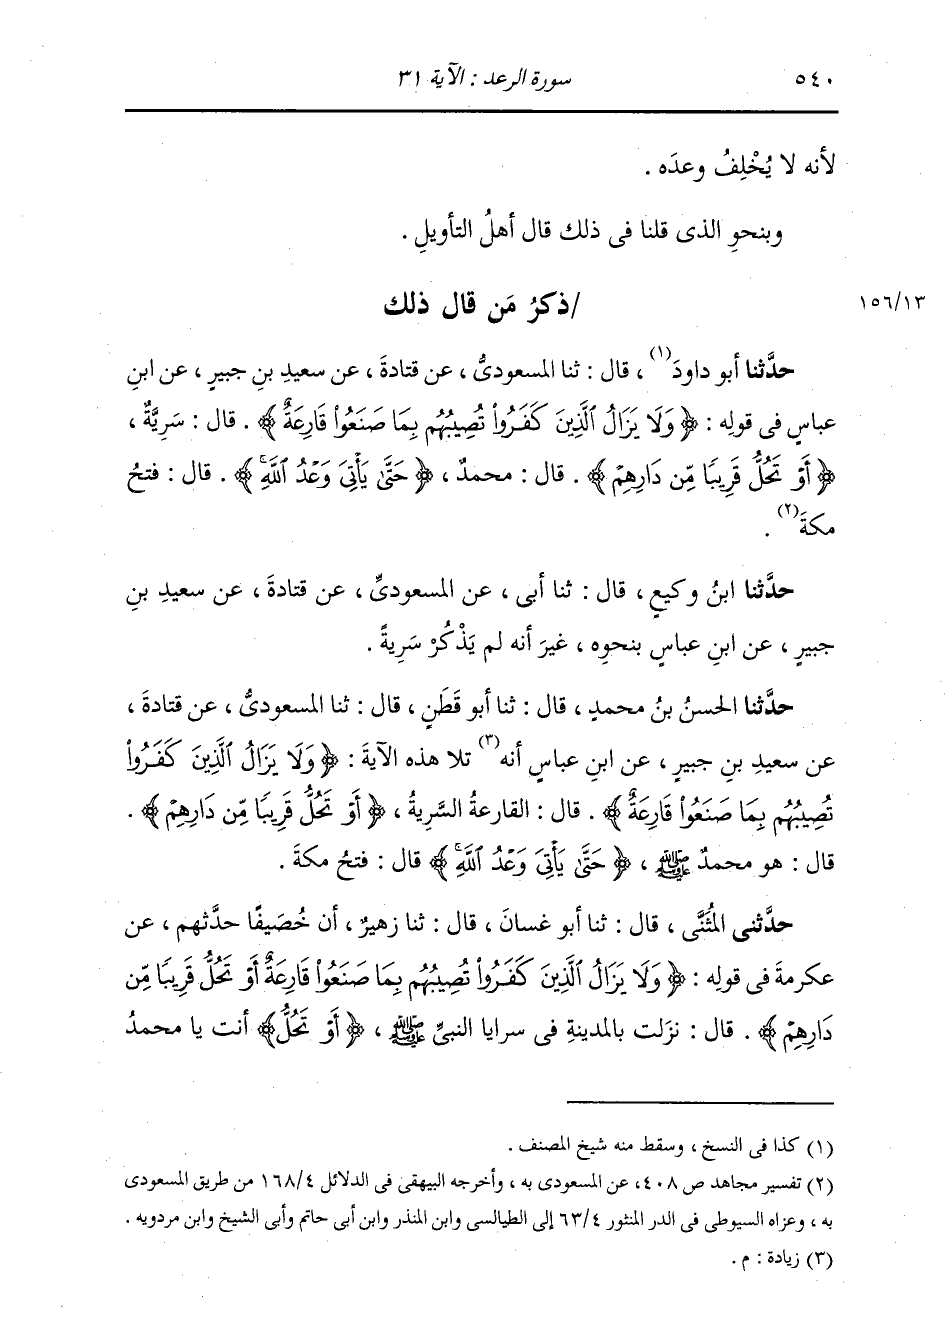 ٥٤٠ سورة الرعد : الآية ٣١
لأنه لا يُخْلِفُ وعدَه .
وبنحوِ الذى قلنا فى ذلك قال أهلُ التأويلِ .
١٥٦/١٣ /ذكرُ مَن قال ذلك
حدَّثنا أبو داودَ(١) ، قال : ثنا المسعودىُّ ، عن قتادةَ ، عن سعيدِ بنِ جبيرٍ ، عن ابنِ
عباسٍ فى قولِه : ﴿ وَلَا يَزَالُ ٱلَّذِينَ كَفَرُوا۟ تُصِيبُهُم بِمَا صَنَعُوا۟ قَارِعَةٌ ﴾ . قال : سَرِيَّةٌ ،
﴿ أَوْ تَحُلُّ قَرِيبًا مِّن دَارِهِمْ ﴾ . قال : محمدٌ ، ﴿ حَتَّىٰ يَأْتِىَ وَعْدُ ٱللَّهِۚ ﴾ . قال : فتحُ
مكةَ(٢) .
حدَّثنا ابنُ وكيعٍ ، قال : ثنا أبى ، عن المسعودىِّ ، عن قتادةَ ، عن سعيدِ بنِ
جبيرٍ ، عن ابنِ عباسٍ بنحوِه ، غيرَ أنه لم يَذْكُرْ سَرِيةً .
حدَّثنا الحسنُ بنُ محمدٍ ، قال : ثنا أبو قَطَنٍ ، قال : ثنا المسعودىُّ ، عن قتادةَ ،
عن سعيدِ بنِ جبيرٍ ، عن ابنِ عباسٍ أنه(٣) تلا هذه الآيةَ : ﴿ وَلَا يَزَالُ ٱلَّذِينَ كَفَرُوا۟
تُصِيبُهُم بِمَا صَنَعُوا۟ قَارِعَةٌ ﴾ . قال : القارعةُ السَّريةُ ، ﴿ أَوْ تَحُلُّ قَرِيبًا مِّن دَارِهِمْ ﴾ .
قال : هو محمدٌ ﷺ ، ﴿ حَتَّىٰ يَأْتِىَ وَعْدُ ٱللَّهِۚ ﴾ قال : فتحُ مكةَ .
حدَّثنى المُثَنَّى ، قال : ثنا أبو غسانَ ، قال : ثنا زهيرٌ ، أن خُصَيفًا حدَّثهم ، عن
عكرمةَ فى قولِه : ﴿ وَلَا يَزَالُ ٱلَّذِينَ كَفَرُوا۟ تُصِيبُهُم بِمَا صَنَعُوا۟ قَارِعَةٌ أَوْ تَحُلُّ قَرِيبًا مِّن
دَارِهِمْ ﴾ . قال : نزَلت بالمدينةِ فى سرايا النبىِّ ﷺ ، ﴿ أَوْ تَحُلُّ ﴾ أنت يا محمدُ
(١) كذا فى النسخ ، وسقط منه شيخ المصنف .
(٢) تفسير مجاهد ص ٤٠٨، عن المسعودى به ، وأخرجه البيهقى فى الدلائل ١٦٨/٤ من طريق المسعودى
به ، وعزاه السيوطى فى الدر المنثور ٦٣/٤ إلى الطيالسى وابن المنذر وابن أبى حاتم وأبى الشيخ وابن مردويه .
(٣) زيادة : م .